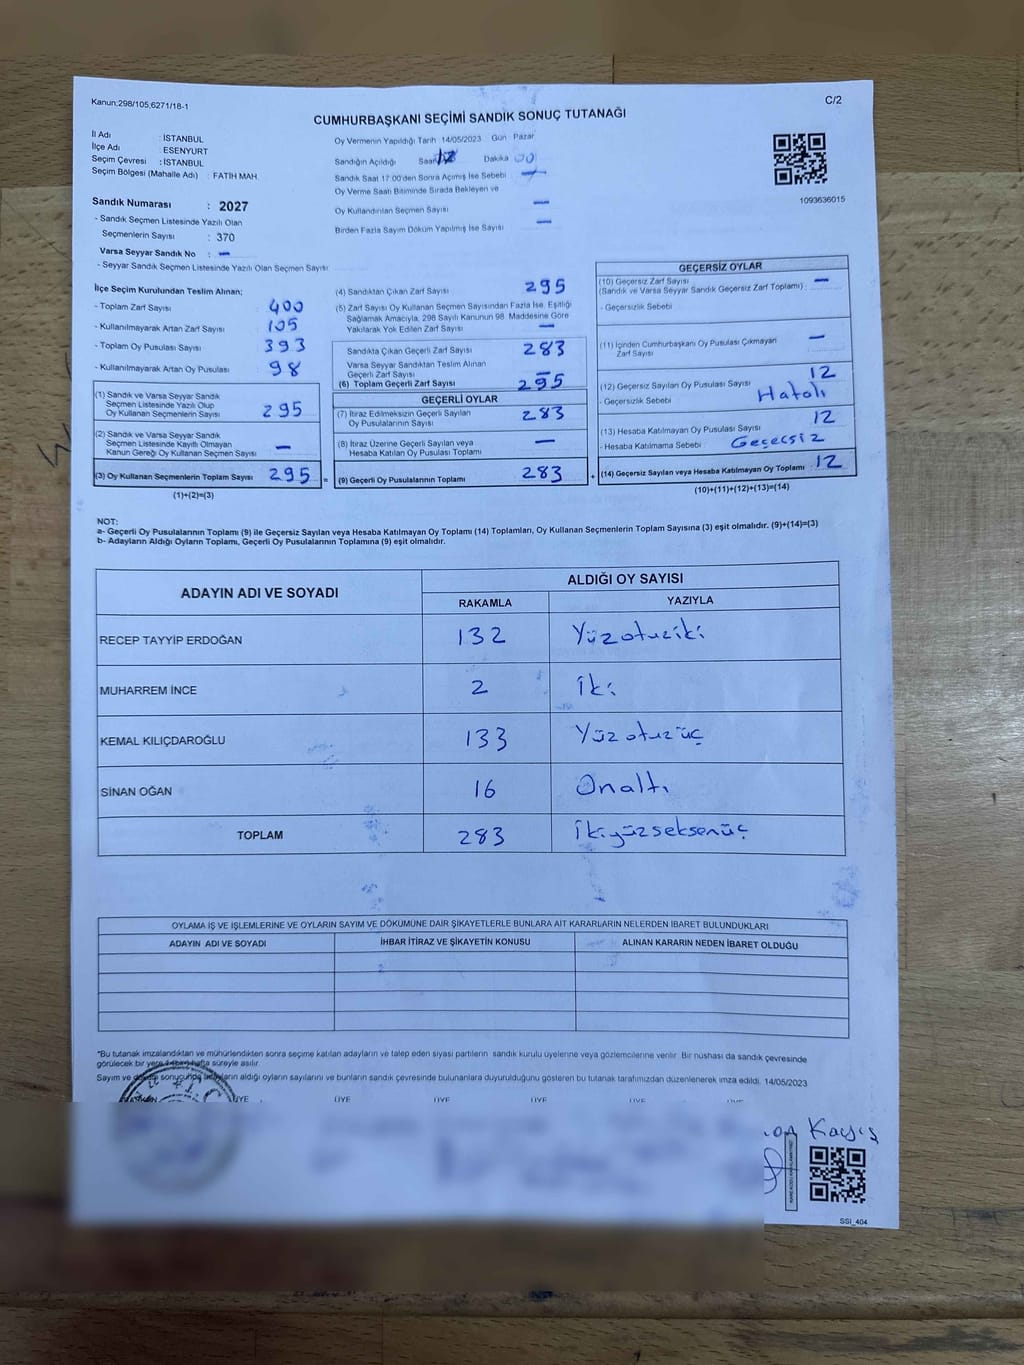 Kanun:298/105;6271/18-1
C/2
CUMHURBAŞKANI SEÇİMİ SANDIK SONUÇ TUTANAĞI
İl Adı : İSTANBUL
İlçe Adı : ESENYURT
Seçim Çevresi : İSTANBUL
Seçim Bölgesi (Mahalle Adı) : FATİH MAH.
Sandık Numarası : 2027
- Sandık Seçmen Listesinde Yazılı Olan
Seçmenlerin Sayısı : 370
Varsa Seyyar Sandık No : -
- Seyyar Sandık Seçmen Listesinde Yazılı Olan Seçmen Sayısı
Oy Vermenin Yapıldığı Tarih 14/05/2023 Gün Pazar
Sandığın Açıldığı Saat 17 Dakika 00
Sandık Saat 17:00'den Sonra Açılmış İse Sebebi -
Oy Verme Saati Bitiminde Sırada Bekleyen ve
Oy Kullandırılan Seçmen Sayısı -
Birden Fazla Sayım Döküm Yapılmış İse Sayısı -
1093636015
İlçe Seçim Kurulundan Teslim Alınan;
- Toplam Zarf Sayısı 400
- Kullanılmayarak Artan Zarf Sayısı 105
- Toplam Oy Pusulası Sayısı 393
- Kullanılmayarak Artan Oy Pusulası 98
(1) Sandık ve Varsa Seyyar Sandık
Seçmen Listesinde Yazılı Olup
Oy Kullanan Seçmenlerin Sayısı 295
(2) Sandık ve Varsa Seyyar Sandık
Seçmen Listesinde Kayıtlı Olmayan
Kanun Gereği Oy Kullanan Seçmen Sayısı -
(3) Oy Kullanan Seçmenlerin Toplam Sayısı 295
(1)+(2)=(3)
(4) Sandıktan Çıkan Zarf Sayısı 295
(5) Zarf Sayısı Oy Kullanan Seçmen Sayısından Fazla İse, Eşitliği
Sağlamak Amacıyla, 298 Sayılı Kanunun 98. Maddesine Göre
Yakılarak Yok Edilen Zarf Sayısı -
Sandıkta Çıkan Geçerli Zarf Sayısı 283
Varsa Seyyar Sandıktan Teslim Alınan
Geçerli Zarf Sayısı -
(6) Toplam Geçerli Zarf Sayısı 295
GEÇERLİ OYLAR
(7) İtiraz Edilmeksizin Geçerli Sayılan
Oy Pusulalarının Sayısı 283
(8) İtiraz Üzerine Geçerli Sayılan veya
Hesaba Katılan Oy Pusulası Toplamı -
= (9) Geçerli Oy Pusulalarının Toplamı 283
GEÇERSİZ OYLAR
(10) Geçersiz Zarf Sayısı -
(Sandık ve Varsa Seyyar Sandık Geçersiz Zarf Toplamı)
- Geçersizlik Sebebi
(11) İçinden Cumhurbaşkanı Oy Pusulası Çıkmayan
Zarf Sayısı -
(12) Geçersiz Sayılan Oy Pusulası Sayısı 12
- Geçersizlik Sebebi Hatalı
(13) Hesaba Katılmayan Oy Pusulası Sayısı 12
- Hesaba Katılmama Sebebi Geçersiz
+ (14) Geçersiz Sayılan veya Hesaba Katılmayan Oy Toplamı 12
(10)+(11)+(12)+(13)=(14)
NOT:
a- Geçerli Oy Pusulalarının Toplamı (9) ile Geçersiz Sayılan veya Hesaba Katılmayan Oy Toplamı (14) Toplamları, Oy Kullanan Seçmenlerin Toplam Sayısına (3) eşit olmalıdır. (9)+(14)=(3)
b- Adayların Aldığı Oyların Toplamı, Geçerli Oy Pusulalarının Toplamına (9) eşit olmalıdır.
ADAYIN ADI VE SOYADI ALDIĞI OY SAYISI
RAKAMLA YAZIYLA
RECEP TAYYİP ERDOĞAN 132 Yüzotuziki
MUHARREM İNCE 2 İki
KEMAL KILIÇDAROĞLU 133 Yüzotuzüç
SİNAN OĞAN 16 Onaltı
TOPLAM 283 İkiyüzseksenüç
OYLAMA İŞ VE İŞLEMLERİNE VE OYLARIN SAYIM VE DÖKÜMÜNE DAİR ŞİKAYETLERLE BUNLARA AİT KARARLARIN NELERDEN İBARET BULUNDUKLARI
ADAYIN ADI VE SOYADI İHBAR İTİRAZ VE ŞİKAYETİN KONUSU ALINAN KARARIN NEDEN İBARET OLDUĞU
*Bu tutanak imzalandıktan ve mühürlendikten sonra seçime katılan adayların ve talep eden siyasi partilerin sandık kurulu üyelerine veya gözlemcilerine verilir. Bir nüshası da sandık çevresinde
görülecek bir yere 1 bir hafta süreyle asılır.
Sayım ve döküm sonucunda adayların aldığı oyların sayılarını ve bunların sandık çevresinde bulunanlara duyurulduğunu gösteren bu tutanak tarafımızdan düzenlenerek imza edildi. 14/05/2023
BAŞKAN ÜYE ÜYE ÜYE ÜYE ÜYE
Kayış
SSI_404